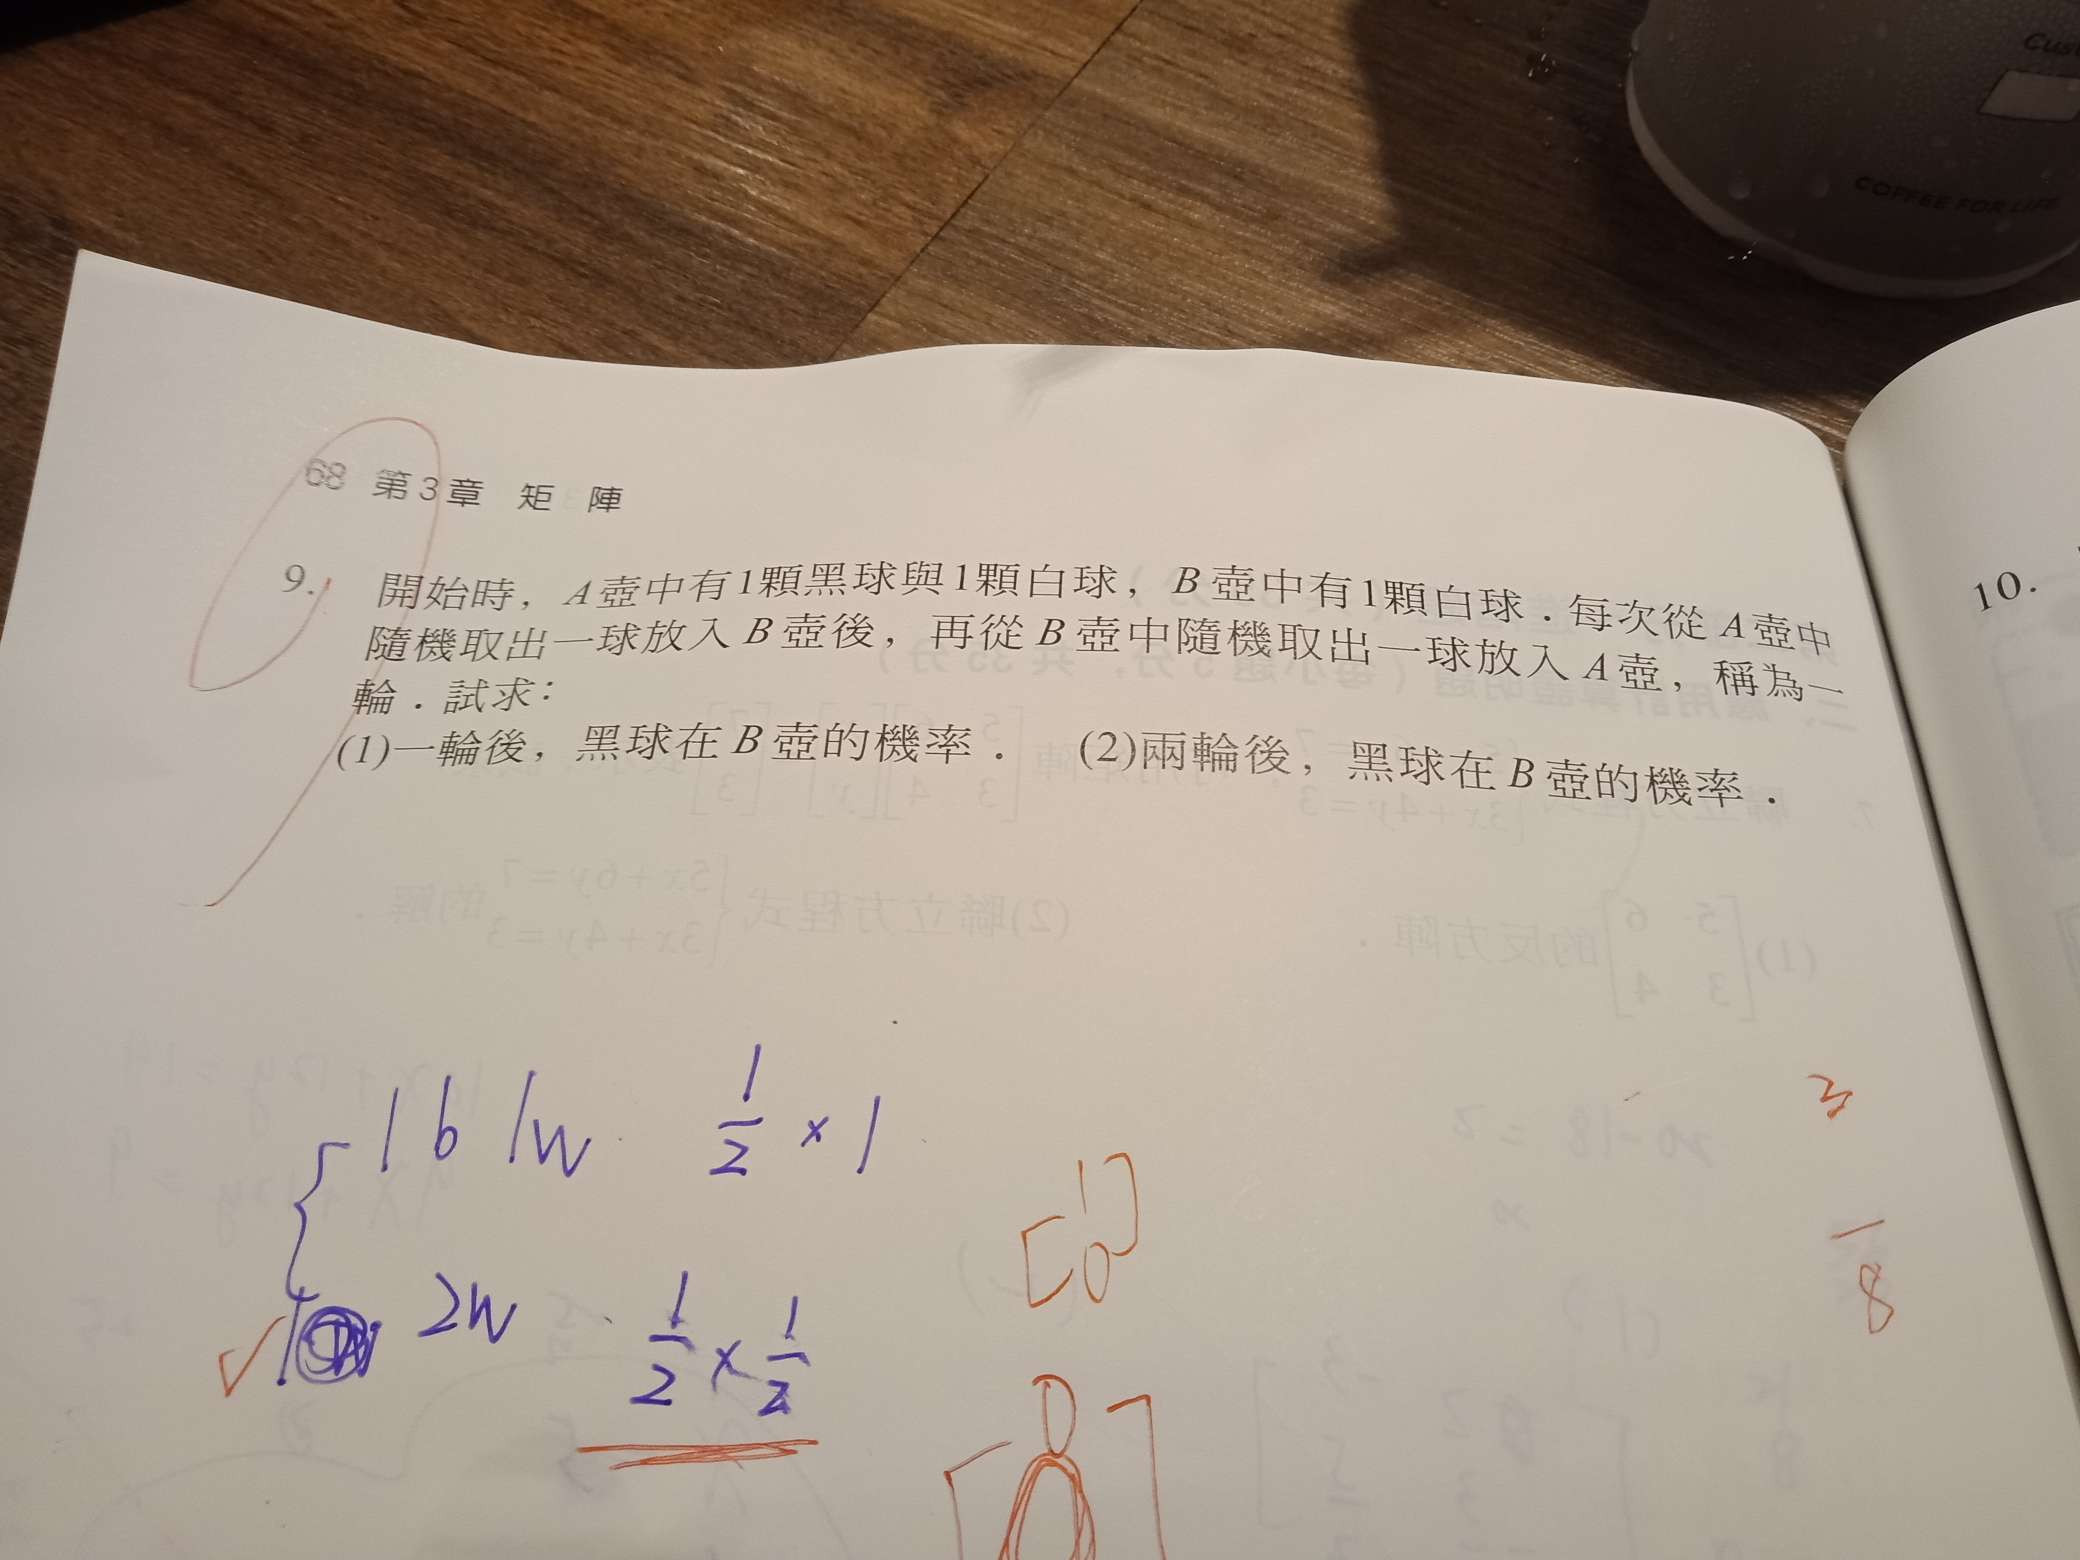 Cust
COFFEE FOR LIFE
68 第3章 矩 陣
9. 開始時，A壺中有1顆黑球與1顆白球，B壺中有1顆白球．每次從A壺中
隨機取出一球放入B壺後，再從B壺中隨機取出一球放入A壺，稱為一
輪．試求：
(1)一輪後，黑球在B壺的機率． (2)兩輪後，黑球在B壺的機率．
10.
1b 1w 1/2 × 1
2w 1/2 × 1/2
[1 0]
3
8